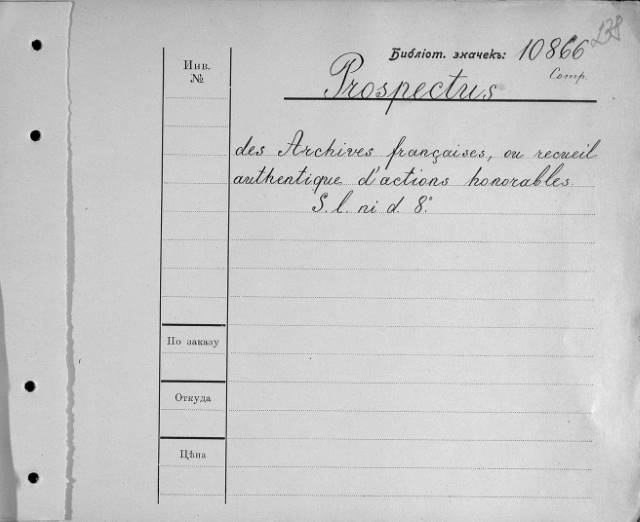 138
Библіот. значекъ: 10866
Comp.
Инв.
№
Prospectus
des Archives françaises, ou recueil
authentique d'actions honorables.
S. l. ni d. 8°
По заказу
Откуда
Цѣна